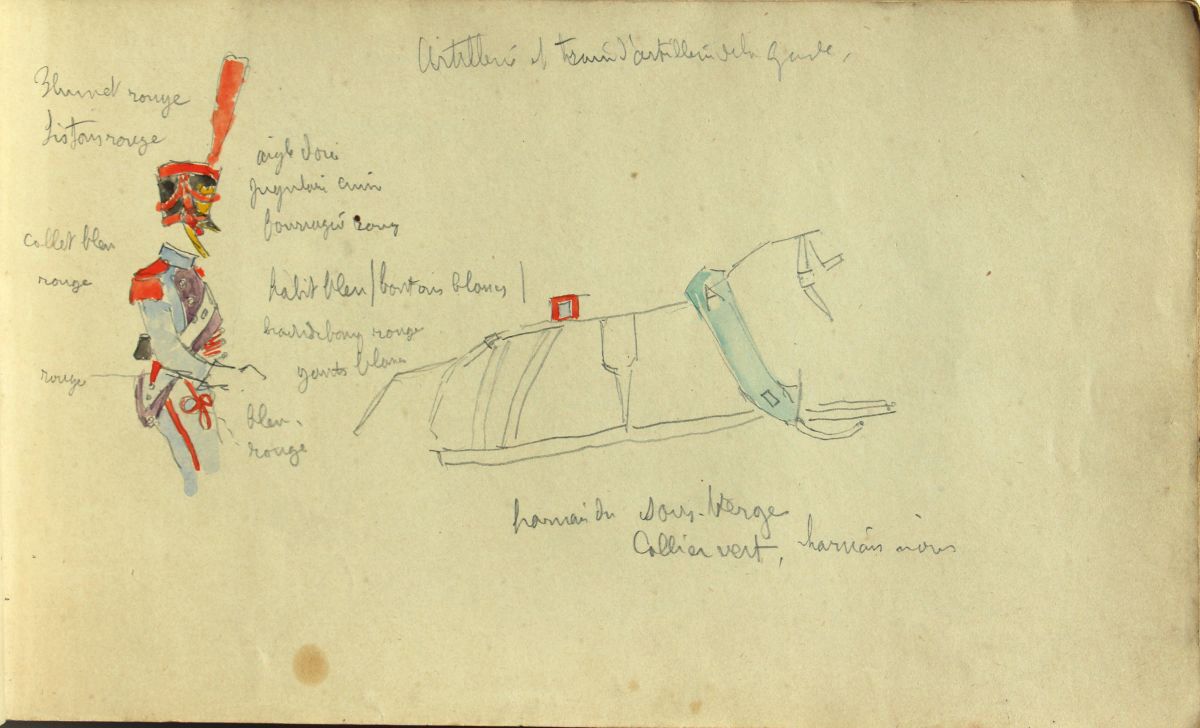 Artillerie et train d'artillerie de la garde,
Plumet rouge
Listons rouge
aigle doré
jugulaire cuir
fourragère rouge
collet bleu
rouge
habit bleu (boutons blancs)
brandebourg rouge
gants blancs
rouge
bleu.
rouge
A
harnais du sous-verge
Collier vert, harnais noirs